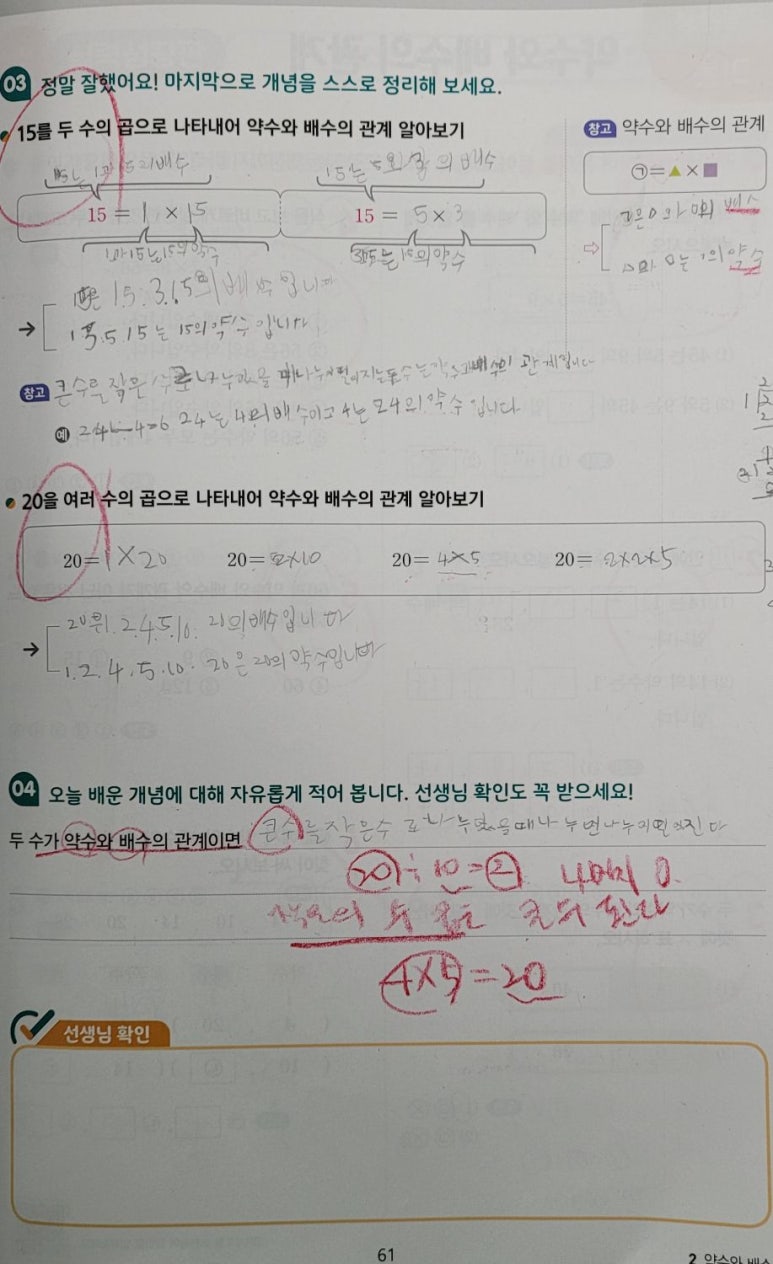 03 정말 잘했어요! 마지막으로 개념을 스스로 정리해 보세요.
15를 두 수의 곱으로 나타내어 약수와 배수의 관계 알아보기
참고 약수와 배수의 관계
㉠=▲×■
15는 1과 15의 배수
15는 5와 3의 배수
15 = 1 × 15
15 = 5 × 3
1과 15는 15의 약수
3과5는 15의 약수
배수
약수
15은 1.5.3.15의 배수입니다
1.3.5.15는 15의 약수입니다
참고 큰 수를 작은 수로 나누었을 때 나누어떨어지는 두 수는 약수와 배수의 관계입니다
예 24÷4=6 24는 4의 배수이고 4는 24의 약수입니다
20을 여러 수의 곱으로 나타내어 약수와 배수의 관계 알아보기
20=1×20
20=2×10
20=4×5
20=2×2×5
20은 1.2.4.5.10. 20의 배수입니다
1.2.4.5.10. 20은 20의 약수입니다
04 오늘 배운 개념에 대해 자유롭게 적어 봅니다. 선생님 확인도 꼭 받으세요!
두 수가 약수와 배수의 관계이면 큰수를 작은수 로 나누었을때 나누면 나누어떨어진다
20÷10=2 나머지 0.
두 곱은 큰수 된다
4×5=20
선생님 확인
61
2 약수와 배수